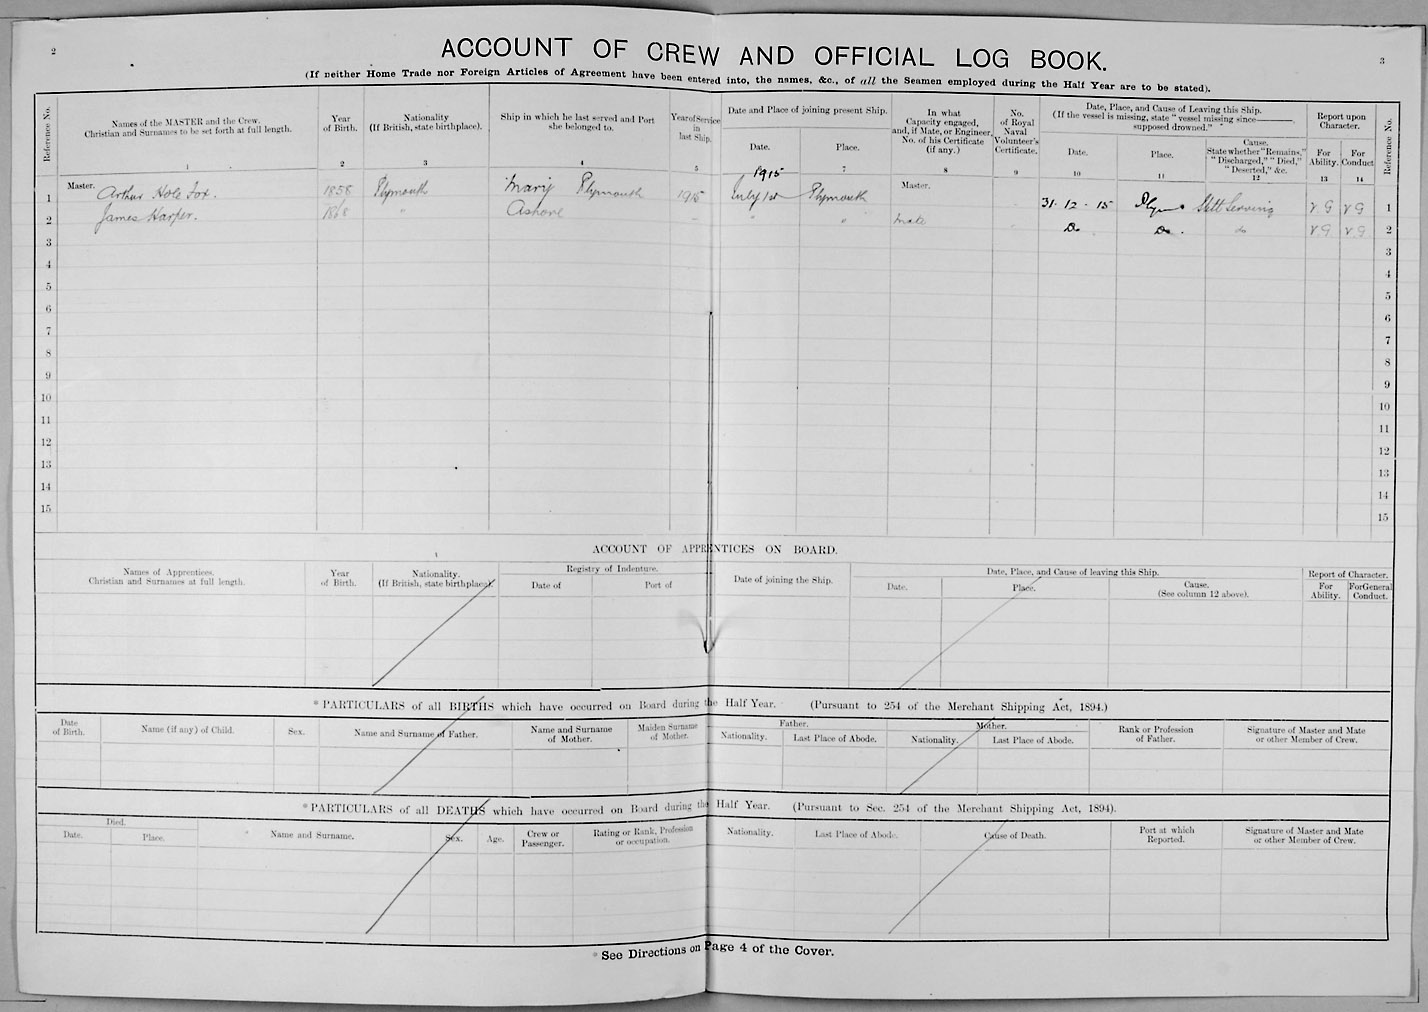 2
3
ACCOUNT OF CREW AND OFFICIAL LOG BOOK.
(If neither Home Trade nor Foreign Articles of Agreement have been entered into, the names, &c., of all the Seamen employed during the Half Year are to be stated).
Reference No.
Names of the MASTER and the Crew.
Christian and Surnames to be set forth at full length.
1
Year
of Birth.
2
Nationality
(If British, state birthplace).
3
Ship in which he last served and Port
she belonged to.
4
Year of Service
in
last Ship.
5
Date and Place of joining present Ship.
Date.
Place.
7
In what
Capacity engaged,
and, if Mate, or Engineer,
No. of his Certificate
(if any.)
8
No.
of Royal
Naval
Volunteer's
Certificate.
9
Date, Place, and Cause of Leaving this Ship.
(If the vessel is missing, state "vessel missing since——,
supposed drowned."
Date.
10
Place.
11
Cause.
State whether "Remains,"
"Discharged," "Died,"
"Deserted," &c.
12
Report upon
Character.
For
Ability.
13
For
Conduct
14
Reference No.
1915
1 Master. Arthur Hole Fox. 1858 Plymouth Mary Plymouth 1915 July 1st Plymouth Master. 31 · 12 · 15 Plym Still Serving V. G V G 1
2 James Harper. 1868 " Ashore – " " Mate Do Do. do V. G. V. G 2
3 3
4 4
5 5
6 6
7 7
8 8
9 9
10 10
11 11
12 12
13 13
14 14
15 15
ACCOUNT OF APPRENTICES ON BOARD.
Names of Apprentices.
Christian and Surnames at full length.
Year
of Birth.
Nationality.
(If British, state birthplace).
Registry of Indenture.
Date of
Port of
Date of joining the Ship.
Date, Place, and Cause of leaving this Ship.
Date.
Place.
Cause.
(See column 12 above).
Report of Character.
For
Ability.
For General
Conduct.
*PARTICULARS of all BIRTHS which have occurred on Board during the Half Year. (Pursuant to 254 of the Merchant Shipping Act, 1894.)
Date
of Birth.
Name (if any) of Child.
Sex.
Name and Surname of Father.
Name and Surname
of Mother.
Maiden Surname
of Mother.
Father.
Nationality.
Last Place of Abode.
Mother.
Nationality.
Last Place of Abode.
Rank or Profession
of Father.
Signature of Master and Mate
or other Member of Crew.
*PARTICULARS of all DEATHS which have occurred on Board during the Half Year. (Pursuant to Sec. 254 of the Merchant Shipping Act, 1894).
Died.
Date.
Place.
Name and Surname.
Sex.
Age.
Crew or
Passenger.
Rating or Rank, Profession
or occupation.
Nationality.
Last Place of Abode.
Cause of Death.
Port at which
Reported.
Signature of Master and Mate
or other Member of Crew.
*See Directions on Page 4 of the Cover.